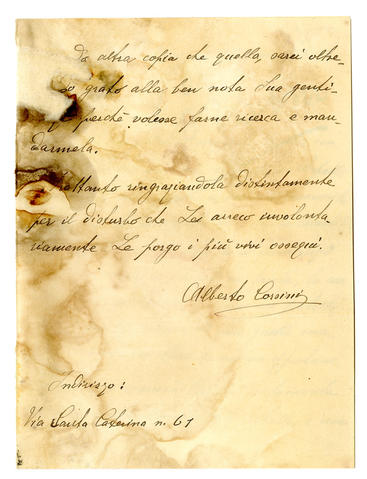 da altra copia che quella, sarei oltre-
grato alla ben nota Sua genti-
perchè volesse farne ricerca e man-
darmela.
rattanto ringraziandola distintamente
per il disturbo che Les arreco involonta-
riamente Le porgo i più vivi ossequi.
Alberto Corsini
Indirizzo:
Via Santa Caterina n. 61